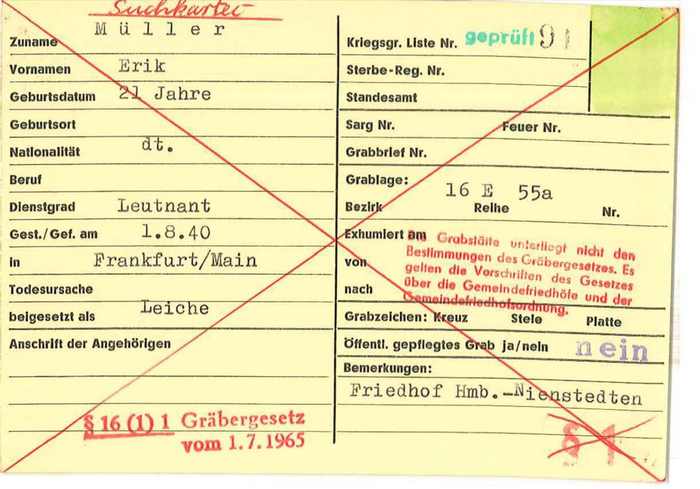 Suchkartei
Zuname Müller
Vornamen Erik
Geburtsdatum 21 Jahre
Geburtsort
Nationalität dt.
Beruf
Dienstgrad Leutnant
Gest./Gef. am 1.8.40
in Frankfurt/Main
Todesursache
beigesetzt als Leiche
Anschrift der Angehörigen
§ 16 (1) 1 Gräbergesetz
vom 1.7.1965
Kriegsgr. Liste Nr. geprüft 91
Sterbe-Reg. Nr.
Standesamt
Sarg Nr. Feuer Nr.
Grabbrief Nr.
Grablage: 16 E 55a
Bezirk Reihe Nr.
Exhumiert am
von
nach
Die Grabstätte unterliegt nicht den
Bestimmungen des Gräbergesetzes. Es
gelten die Vorschriften des Gesetzes
über die Gemeindefriedhöfe und der
Gemeindefriedhofsordnung.
Grabzeichen: Kreuz Stele Platte
Öffentl. gepflegtes Grab ja/nein nein
Bemerkungen:
Friedhof Hmb.-Nienstedten
§ 1